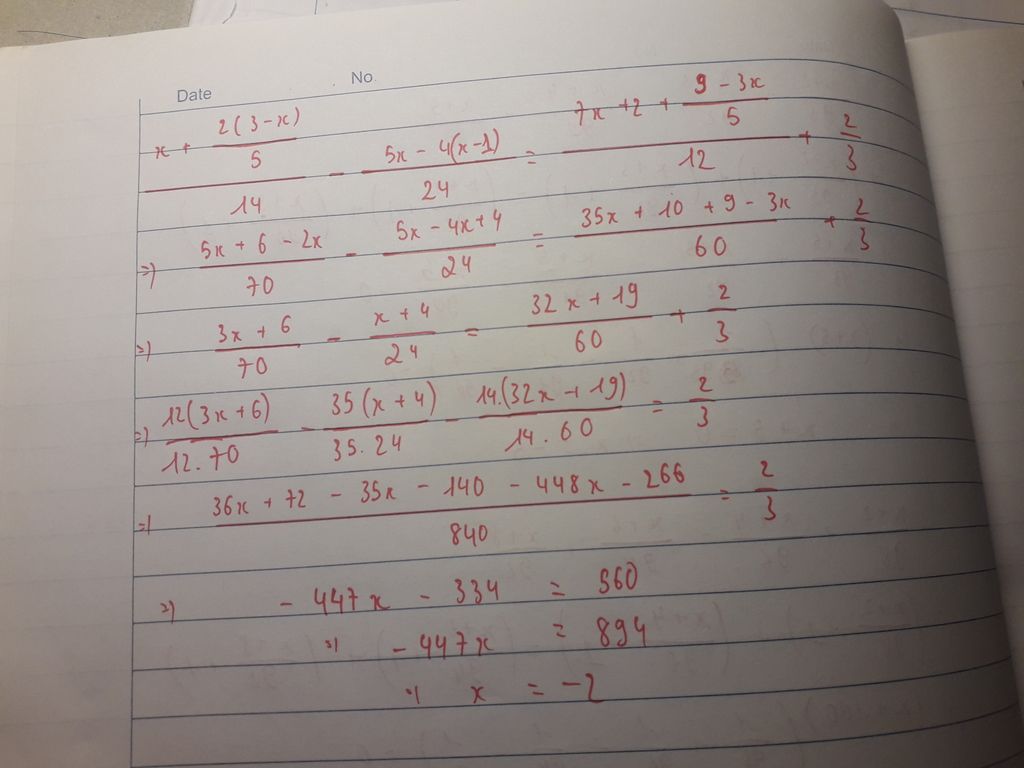 Date No
x + 2(3-x)/5 / 14 - 5x - 4(x-1) / 24 = 7x + 2 + 9 - 3x/5 / 12 + 2/3
=) 5x + 6 - 2x / 70 - 5x - 4x + 4 / 24 = 35x + 10 + 9 - 3x / 60 + 2/3
=) 3x + 6 / 70 - x + 4 / 24 = 32x + 19 / 60 + 2/3
=) 12(3x + 6) / 12.70 - 35(x + 4) / 35.24 - 14.(32x + 19) / 14.60 = 2/3
=) 36x + 72 - 35x - 140 - 448x - 266 / 840 = 2/3
=) - 447x - 334 = 560
=) - 447x = 894
=) x = -2